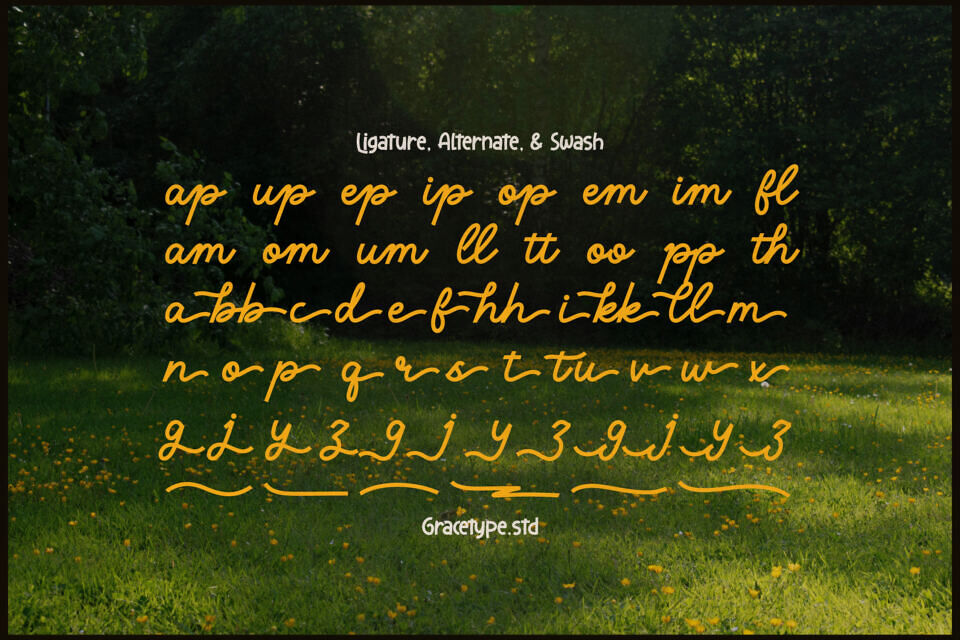 Ligature, Alternate, & Swash
ap up ep ip op em im fl
am om um ll tt oo pp th
a bb c d e f hh i kk ll m
n o p q r s t tu v w x
g j y z g j y z g j y z
Gracetype.std